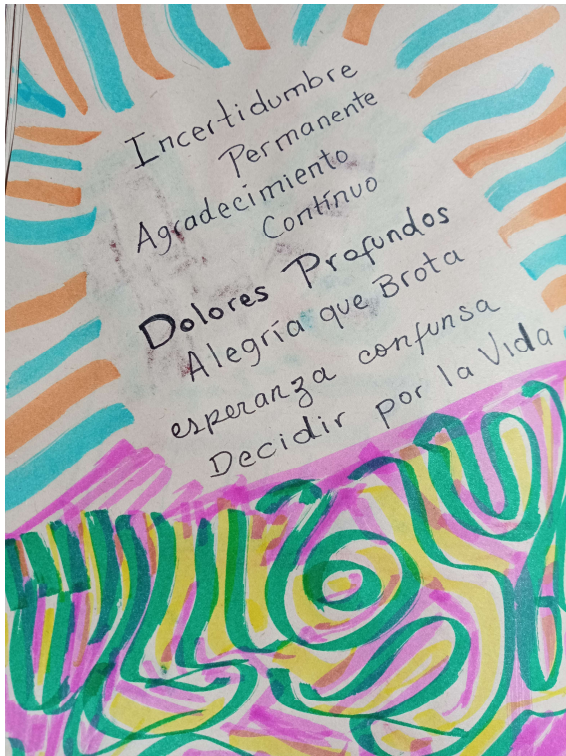 Incertidumbre
Permanente
Agradecimiento
Contínuo
Dolores Profundos
Alegría que Brota
esperanza confunsa
Decidir por la Vida